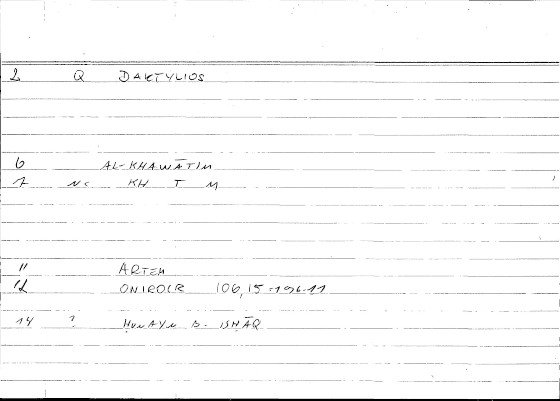 2 Q DAKTYLIOS
6 AL-KHAWĀTIM
7 Nc KH T M
11 ARTEM
12 ONIROCR 106,15 = 196.11
14 ? ḤUNAYN B. ISḤĀQ